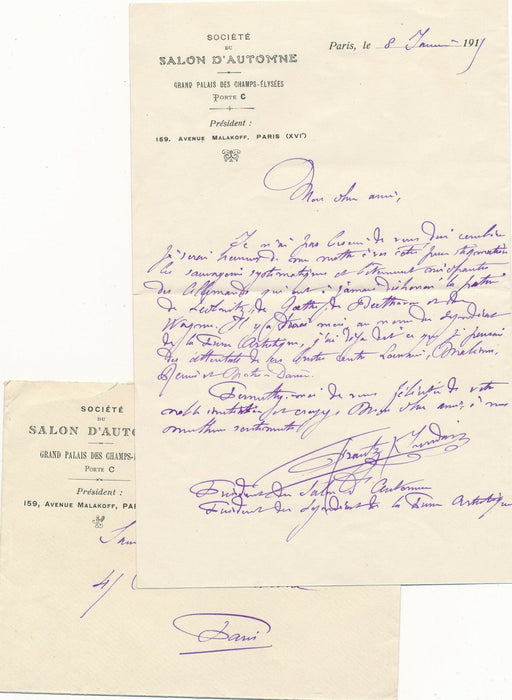 SOCIÉTÉ
DU
SALON D'AUTOMNE
GRAND PALAIS DES CHAMPS-ÉLYSÉES
PORTE C
Président :
159, AVENUE MALAKOFF, PARIS (XVIe)
Paris, le 8 Janvier 1915
Mon cher ami,
Je n'ai pas besoin de vous dire combien
je serai heureux de me mettre à vos côtés pour
la sauvagerie systématique et
des Allemands qui ont à jamais déshonoré la patrie
de Leibnitz, de Goethe, de Beethoven et de
Wagner. Il y a trois mois, au nom du Syndicat
de la Presse Artistique, j'ai déjà dit ce que je pensais
des attentats de ces contre Louvain, Malines,
Reims et Notre-Dame.
Permettez-moi de vous féliciter de votre
noble initiative et croyez, Mon cher ami, à mes
meilleurs sentiments
Frantz Jourdain
Président du Salon d'Automne
Président du Syndicat de la Presse Artistique
SOCIÉTÉ
DU
SALON D'AUTO
GRAND PALAIS DES CHAMPS-É
PORTE C
Président :
159, AVENUE MALAKOFF, PAR
Paris